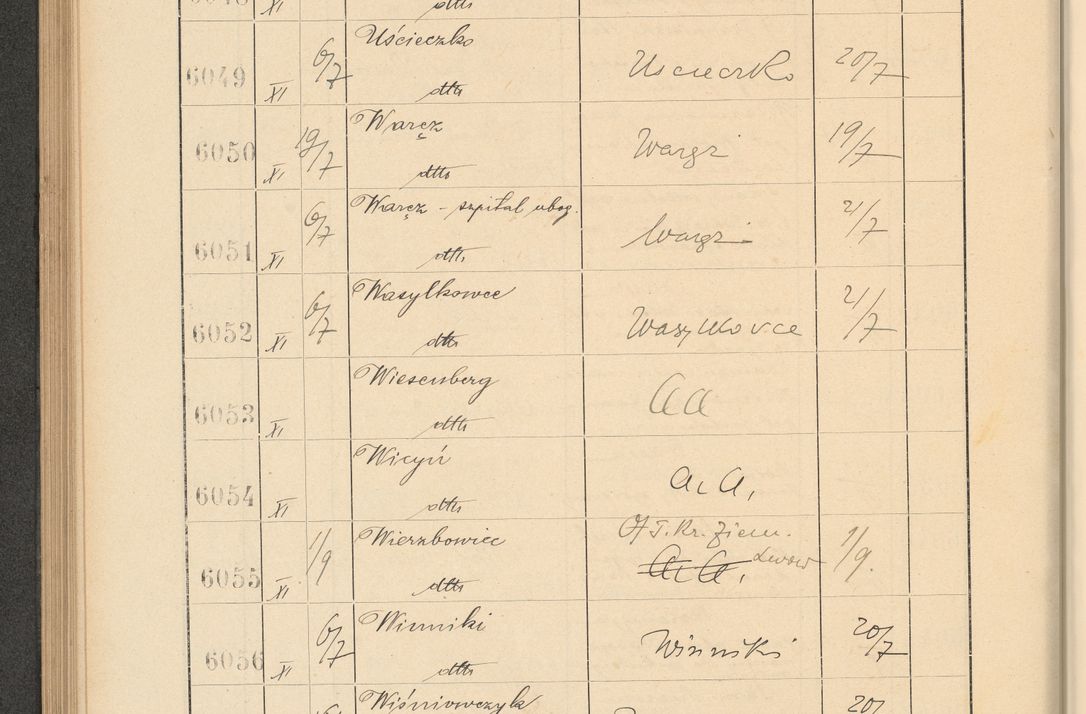 XI dtto
Uścieczko
6049 XI 6/7 dtto Uscieczko 20/7
Waręż
6050 XI 19/7 dtto 19/7
Waręż - szpital ubog.
6051 XI 6/7 dtto 21/7
Wasylkowce
6052 XI 6/7 dtto Wasylkowce 21/7
Wiesenberg
6053 XI dtto aa
Wicyń
6054 XI dtto a. a.
Wierzbowiec T. Kr. Ziem.
6055 XI 1/9 dtto a. a. Lwow 1/9.
Winniki
6056 XI 6/7 dtto Winniki 20/7
Wiśniowczyk 20/